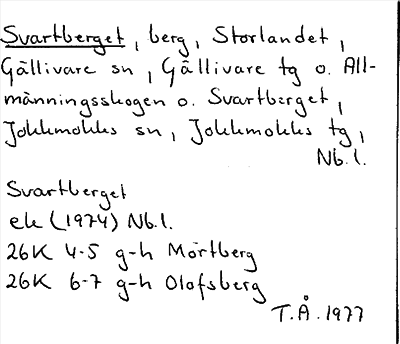 Svartberget, berg, Storlandet,
Gällivare sn, Gällivare tg o. All-
männingsskogen o. Svartberget,
Jokkmokks sn, Jokkmokks tg,
Nb.l.
Svartberget
ek (1974) Nb.l.
26K 4-5 g-h Mörtberg
26K 6-7 g-h Olofsberg
T.Å. 1977